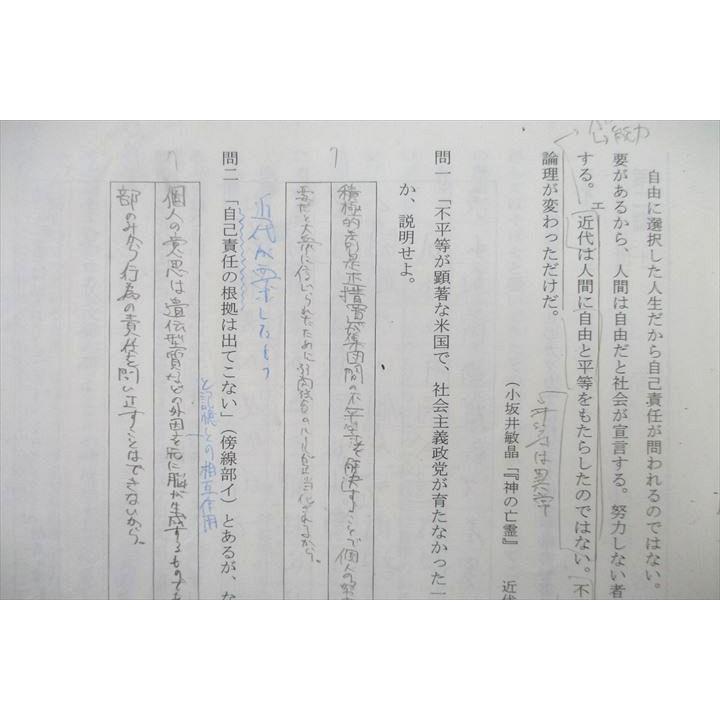 公 能力
自由に選択した人生だから自己責任が問われるのではない。
要があるから、人間は自由だと社会が宣言する。努力しない者
する。エ近代は人間に自由と平等をもたらしたのではない。不
論理が変わっただけだ。
は異常
(小坂井敏晶『神の亡霊』 近代
問一 「不平等が顕著な米国で、社会主義政党が育たなかった一
か、説明せよ。
7
積極的差別是正措置が集団間の不平等を解決することで個人の努
問二 「自己責任の根拠は出てこない」(傍線部イ)とあるが、な
と記憶との相互作用
7
個人の意思は遺伝型質などの外因を元に脳が生成するもので
部のみかつ行為の責任を問い正すことはできないから。